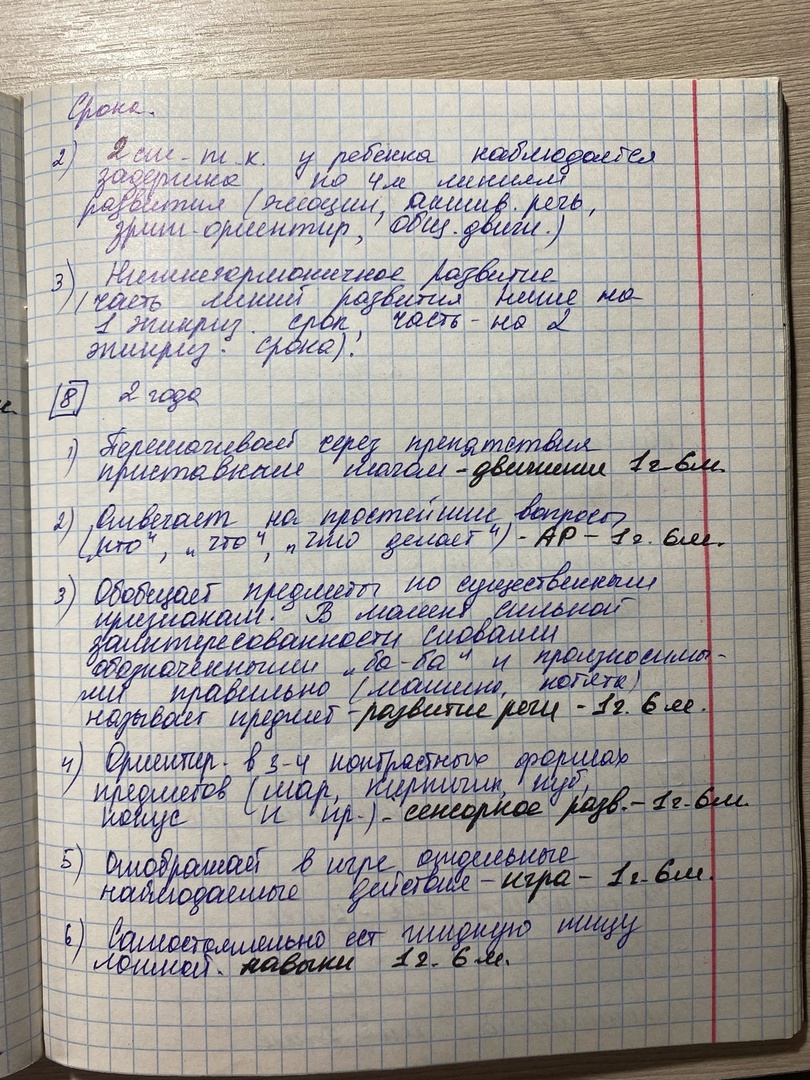 Срока.
2) 2 ст. - т. к. у ребенка наблюдается
задержка по 4м линиям
развития (эмоции, актив. речь,
зрит. ориентир, общ. движ.)
3) Нижнегармоничное развитие
(часть линий развития ниже на
1 эпикриз. срок, часть - на 2
эпикриз. срока).
8 2 года
1) Перешагивает через препятствия
приставным шагом - движение 1г. 6м.
2) Отвечает на простейшие вопросы
("кто", "что", "что делает") - АР - 1г. 6м.
3) Обобщает предметы по существенным
признакам. В момент сильной
заинтересованности словами
обозначенными "ба-ба" и произносимы-
ми правильно (машина, котята)
называет предмет - развитие речи - 1г. 6 м.
4) Ориентир. в 3-4 контрастных формах
предметов (шар, кирпичик, куб,
конус и пр.) - сенсорное разв. - 1г. 6м.
5) Отображает в игре отдельные
наблюдаемые действия - игра - 1г. 6м.
6) Самостоятельно ест жидкую пищу
ложкой. навыки 1г. 6 м.